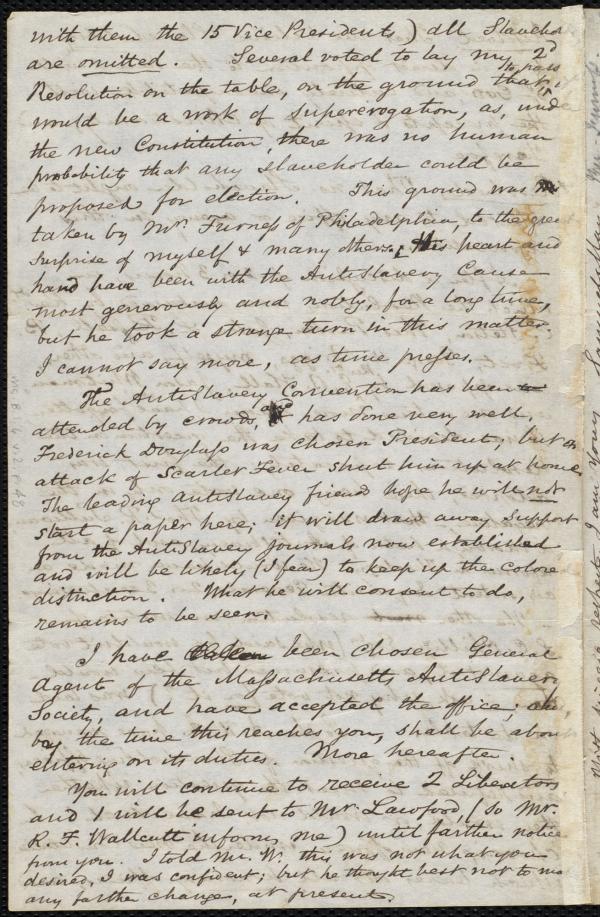 with them the 15 Vice Presidents) all Slavehol
are omitted. Several voted to lay my 2d
to pass
Resolution on the table, on the ground that, it
would be a work of supererogation, as, unde
the new Constitution, there was no human
probability that any slaveholder could be
proposed for election. This ground was
taken by Mr. Furness of Philadelphia, to the great
surprise of myself & many others. His heart and
hand have been with the AntiSlavery Cause
most generously and nobly, for a long time,
but he took a strange turn in this matter.
I cannot say more, as time presses.
The AntiSlavery Convention has been
attended by crowds, and has done very well.
Frederick Douglass was chosen President; but an
attack of Scarlet Fever shut him up at home.
The leading AntiSlavery friends hope he will not
start a paper here; it will draw away support
from the AntiSlavery journals now established
and will be likely (I fear) to keep up the Colore
distinction. What he will consent to do,
remains to be seen.
I have been chosen General
Agent of the Massachusetts AntiSlavery
Society, and have accepted the office; and,
by the time this reaches you, shall be about
entering on its duties. More hereafter.
You will continue to receive 2 Liberators
and 1 will be sent to Mr. Lawford, (so Mr.
R. F. Wallcutt informs me) until farther notice
from you. I told Mr. W. this was not what you
desired, I was confident; but he thought best not to ma
any farther change, at present.
Most sincere respects, I am Yours,